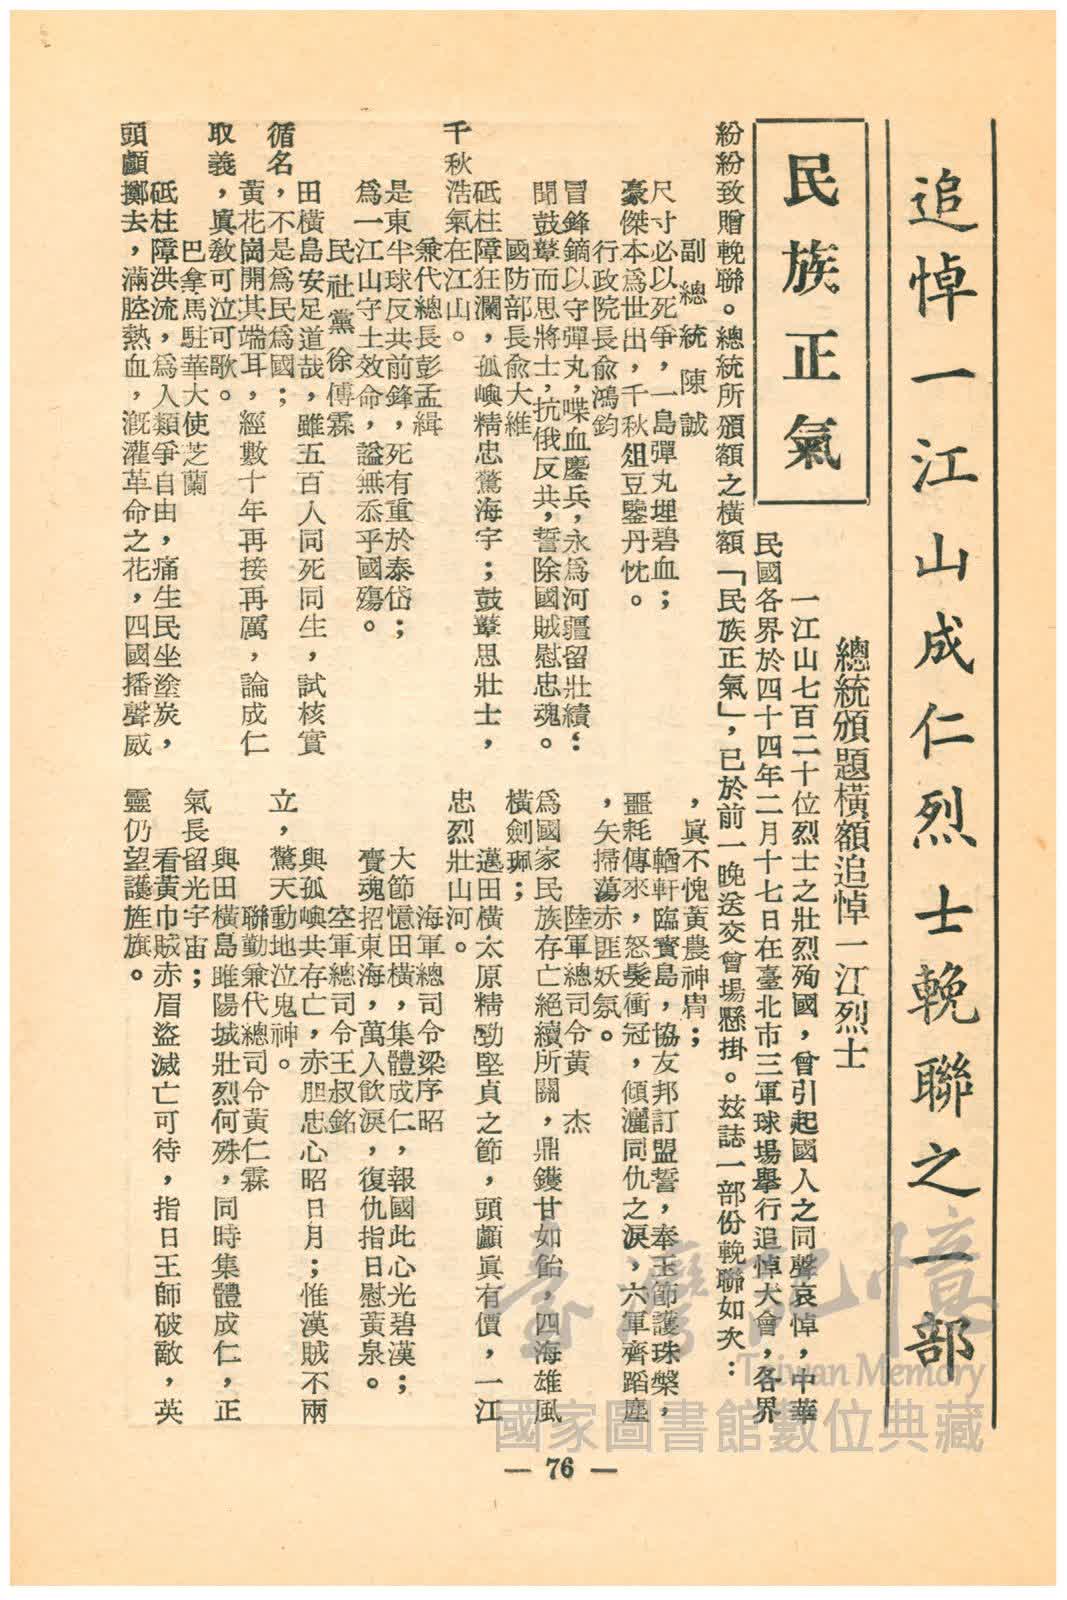 追悼一江山成仁烈士輓聯之一部
總統頒題橫額追悼一江烈士
民族正氣
一江山七百二十位烈士之壯烈殉國，曾引起國人之同聲哀悼，中華
民國各界於四十四年二月十七日在臺北市三軍球場舉行追悼大會，各界
紛紛致贈輓聯。總統所頒額之橫額「民族正氣」，已於前一晚送交會場懸掛。茲誌一部份輓聯如次：
副總統陳誠
尺寸必以死爭，一島彈丸埋碧血；
豪傑本爲世出，千秋俎豆鑒丹忱。
行政院長俞鴻鈞
冒鋒鏑以守彈丸，喋血鏖兵，永爲河疆留壯績；
聞鼓鼙而思將士，抗俄反共，誓除國賊慰忠魂。
國防部長俞大維
砥柱障狂瀾，孤嶼精忠驚海宇；鼓鼙思壯士，
千秋浩氣在江山。
兼代總長彭孟緝
是東半球反共前鋒，死有重於泰岱；
爲一江山守土效命，謚無忝乎國殤。
民社黨徐傅霖
田橫島安足道哉，雖五百人同死同生，試核實
循名，不是爲民爲國；
黃花崗開其端耳，經數十年再接再厲，論成仁
取義，眞教可泣可歌。
巴拿馬駐華大使芝蘭
砥柱障洪流，爲人類爭自由，痛生民坐塗炭，
頭顱擲去，滿腔熱血，漑灌革命之花，四國播聲威
，眞不愧黃農神冑；
輶軒臨寶島，協友邦訂盟誓，奉玉節護珠槃，
噩耗傳來，怒髮衝冠，傾灑同仇之淚，六軍齊蹈塵
，矢掃蕩赤匪妖氛。
陸軍總司令黃　杰
爲國家民族存亡絕續所關，鼎鑊甘如飴，四海雄風
橫劍珮；
邁田橫太原精勁堅貞之節，頭顱眞有價，一江
忠烈壯山河。
海軍總司令梁序昭
大節憶田橫，集體成仁，報國此心光碧漢；
賫魂招東海，萬人飲淚，復仇指日慰黃泉。
空軍總司令王叔銘
與孤嶼共存亡，赤胆忠心昭日月；惟漢賊不兩
立，驚天動地泣鬼神。
聯勤兼代總司令黃仁霖
與田橫島睢陽城壯烈何殊，同時集體成仁，正
氣長留光宇宙；
看黃巾賊赤眉盜滅亡可待，指日王師破敵，英
靈仍望護旌旗。
— 76 —
臺灣記憶
Taiwan Memory
國家圖書館數位典藏